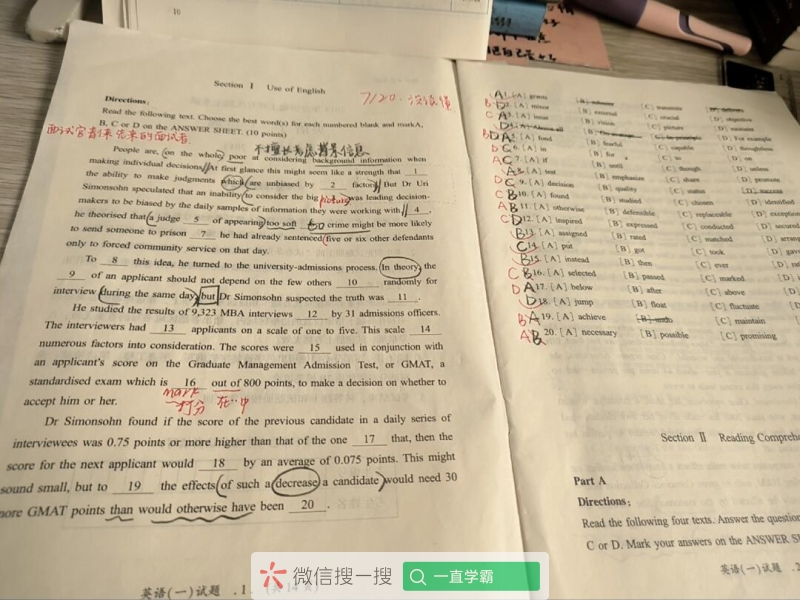 10
Section Ⅰ Use of English
7/20.
Directions:
Read the following text. Choose the best word(s) for each numbered blank and mark A,
B, C or D on the ANSWER SHEET. (10 points)
面试官看待先来的面试者
不擅长考虑背景信息
People are, on the whole, poor at considering background information when
making individual decisions. At first glance this might seem like a strength that 1
the ability to make judgments which are unbiased by 2 factors. But Dr Uri
Simonsohn speculated that an inability to consider the big picture was leading decision-
makers to be biased by the daily samples of information they were working with. 4,
he theorised that a judge 5 of appearing too soft crime might be more likely
to send someone to prison 7 he had already sentenced five or six other defendants
only to forced community service on that day.
To 8 this idea, he turned to the university-admissions process. In theory, the
9 of an applicant should not depend on the few others 10 randomly for
interview during the same day, but Dr Simonsohn suspected the truth was 11.
He studied the results of 9,323 MBA interviews 12 by 31 admissions officers.
The interviewers had 13 applicants on a scale of one to five. This scale 14
numerous factors into consideration. The scores were 15 used in conjunction with
an applicant's score on the Graduate Management Admission Test, or GMAT, a
standardised exam which is 16 out of 800 points, to make a decision on whether to
accept him or her.
mark
打分
在…中
Dr Simonsohn found if the score of the previous candidate in a daily series of
interviewees was 0.75 points or more higher than that of the one 17 that, then the
score for the next applicant would 18 by an average of 0.075 points. This might
sound small, but to 19 the effects of such a decrease a candidate would need 30
more GMAT points than would otherwise have been 20.
英语(一)试题 .1.
1. [A] grants [B] submits [C] transmits [D] delivers
2. [A] minor [B] external [C] crucial [D] objective
3. [A] issue [B] vision [C] picture [D] moment
4. [A] Above all [B] On average [C] In principle [D] For example
5. [A] fond [B] fearful [C] capable [D] thoughtless
6. [A] in [B] for [C] to [D] on
7. [A] if [B] until [C] though [D] unless
8. [A] test [B] emphasize [C] share [D] promote
9. [A] decision [B] quality [C] status [D] success
10. [A] found [B] studied [C] chosen [D] identified
11. [A] otherwise [B] defensible [C] replaceable [D] exceptional
12. [A] inspired [B] expressed [C] conducted [D] secured
13. [A] assigned [B] rated [C] matched [D] arranged
14. [A] put [B] got [C] took [D] gave
15. [A] instead [B] then [C] ever
16. [A] selected [B] passed [C] marked
17. [A] below [B] after [C] above
18. [A] jump [B] float [C] fluctuate
19. [A] achieve [B] undo [C] maintain
20. [A] necessary [B] possible [C] promising
Section Ⅱ Reading Comprehe
Part A
Directions:
Read the following four texts. Answer the question
C or D. Mark your answers on the ANSWER SH
英语(一)试题 .2
微信搜一搜 一直学霸